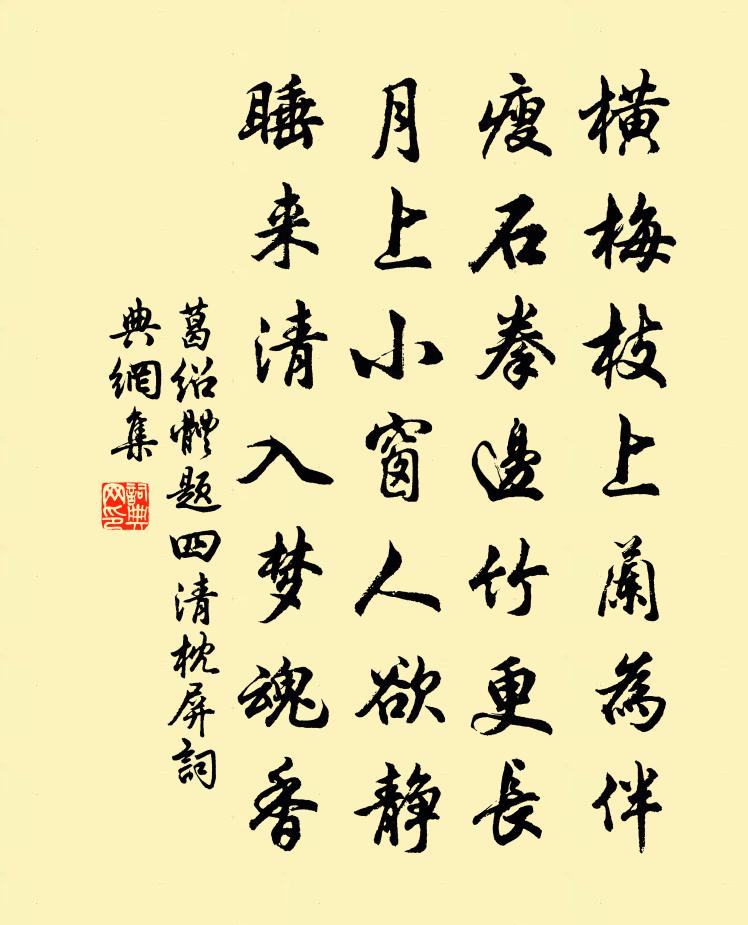 橫梅枝上蘭為伴
瘦石拳邊竹更長
月上小窗人欲静
睡来清入梦魂香
葛绍體題四清枕屏詞
典網集
詞典网印